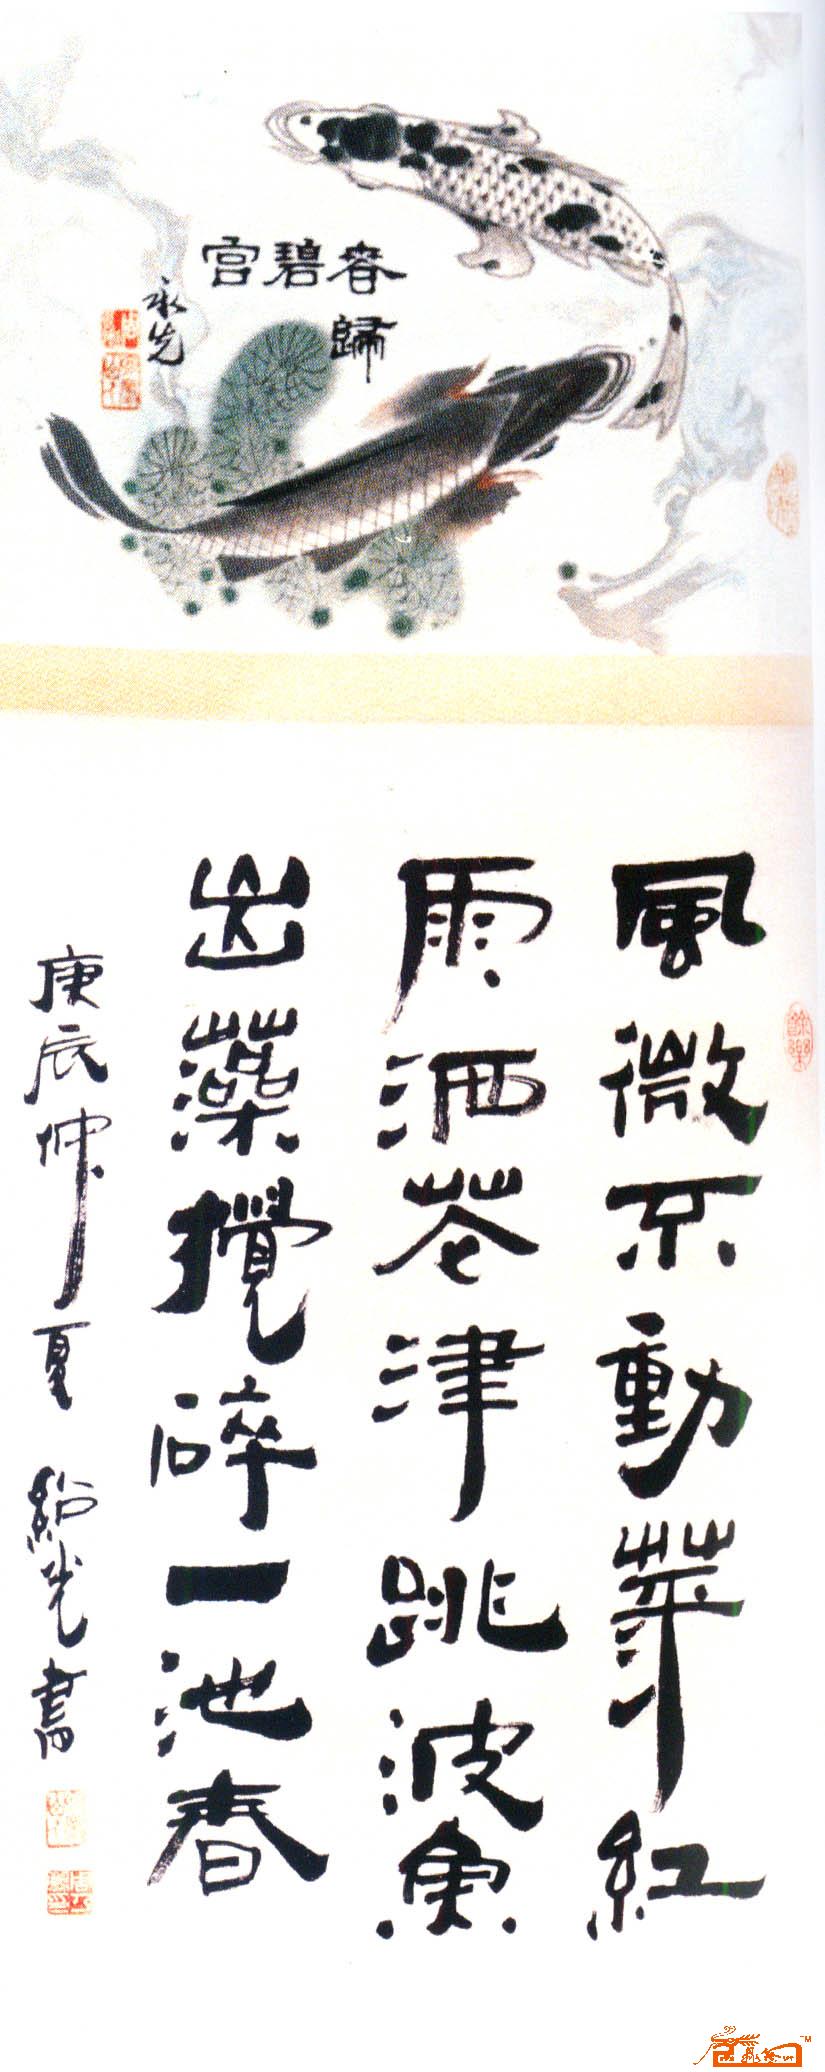 春歸
碧
宮
永先
風微不動萍紅
雨洒花津跳波魚
出藻攪碎一池春
庚辰仲夏 紹光書